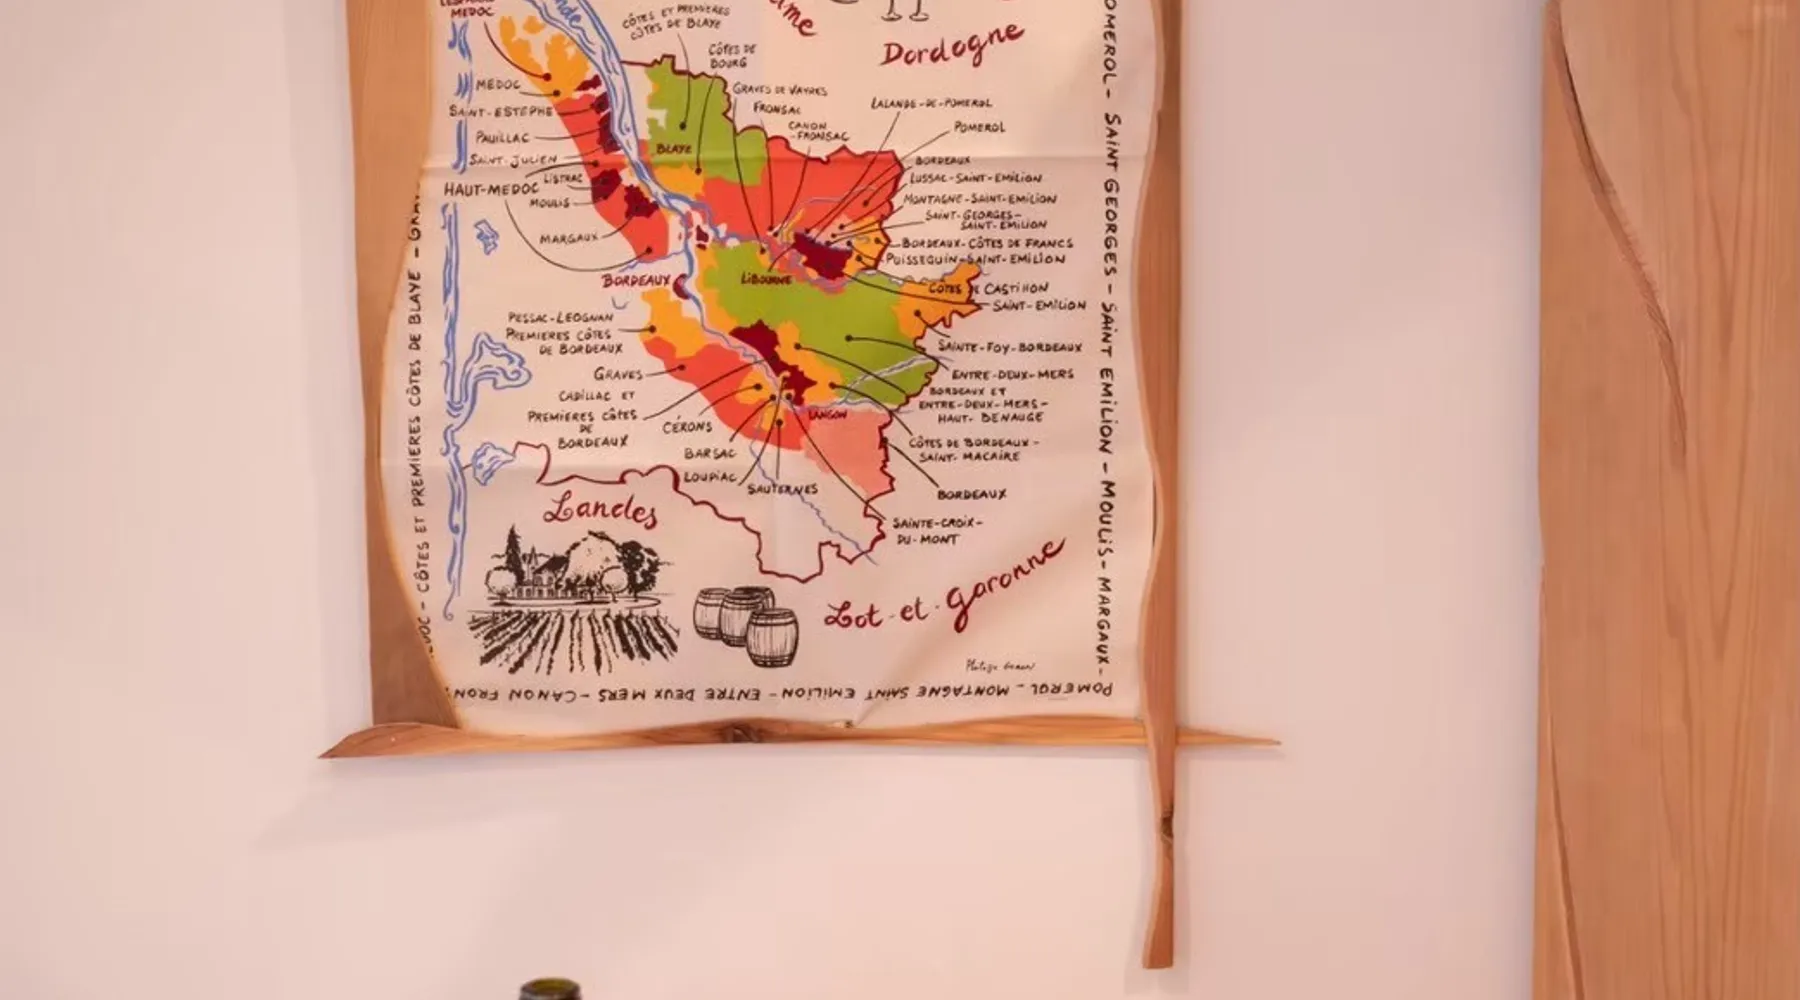 MEDOC
CÔTES ET PREMIÈRES
CÔTES DE BLAYE
CÔTES DE
BOURG
Dordogne
MEDOC
SAINT-ESTEPHE
PAUILLAC
SAINT-JULIEN
LISTRAC
HAUT-MEDOC
MOULIS
MARGAUX
BLAYE
GRAVES DE VAYRES
FRONSAC
CANON
-FRONSAC
LALANDE-DE-POMEROL
POMEROL
BORDEAUX
LUSSAC-SAINT-EMILION
MONTAGNE-SAINT-EMILION
SAINT-GEORGES-
SAINT-EMILION
BORDEAUX-CÔTES DE FRANCS
PUISSEGUIN-SAINT-EMILION
CÔTES DE CASTILLON
SAINT-EMILION
BORDEAUX
LIBOURNE
PESSAC-LEOGNAN
PREMIERES CÔTES
DE BORDEAUX
GRAVES
CADILLAC ET
PREMIERES CÔTES
DE
BORDEAUX
CÉRONS
BARSAC
LOUPIAC
SAUTERNES
LANGON
SAINTE-FOY-BORDEAUX
ENTRE-DEUX-MERS
BORDEAUX ET
ENTRE-DEUX-MERS-
HAUT-BENAUGE
CÔTES DE BORDEAUX-
SAINT-MACAIRE
BORDEAUX
SAINTE-CROIX-
DU-MONT
Landes
Lot-et-Garonne
CÔTES ET PREMIERES CÔTES DE BLAYE -
POMEROL - SAINT GEORGES - SAINT EMILION - MOULIS - MARGAUX -
POMEROL - MONTAGNE SAINT EMILION - ENTRE DEUX MERS - CANON FRON